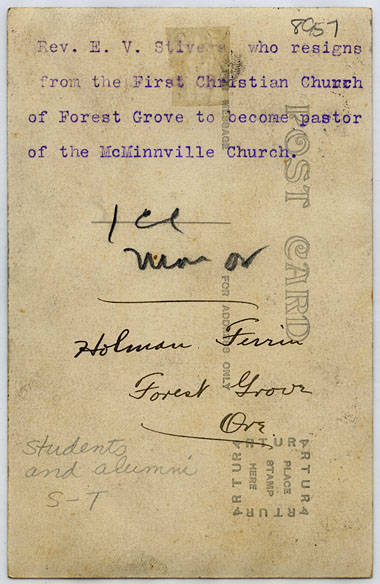 8957
Rev. E. V. Stivers, who resigns
from the First Christian Church
of Forest Grove to become pastor
of the McMinnville Church.
1 cl
Holman Ferrin
Forest Grove
Ore.
Students
and alumni
S-T
POST CARD
MESSAGE
FOR ADDRESS ONLY
ARTURA
PLACE
STAMP
HERE
ARTURA
ARTURA
ARTURA